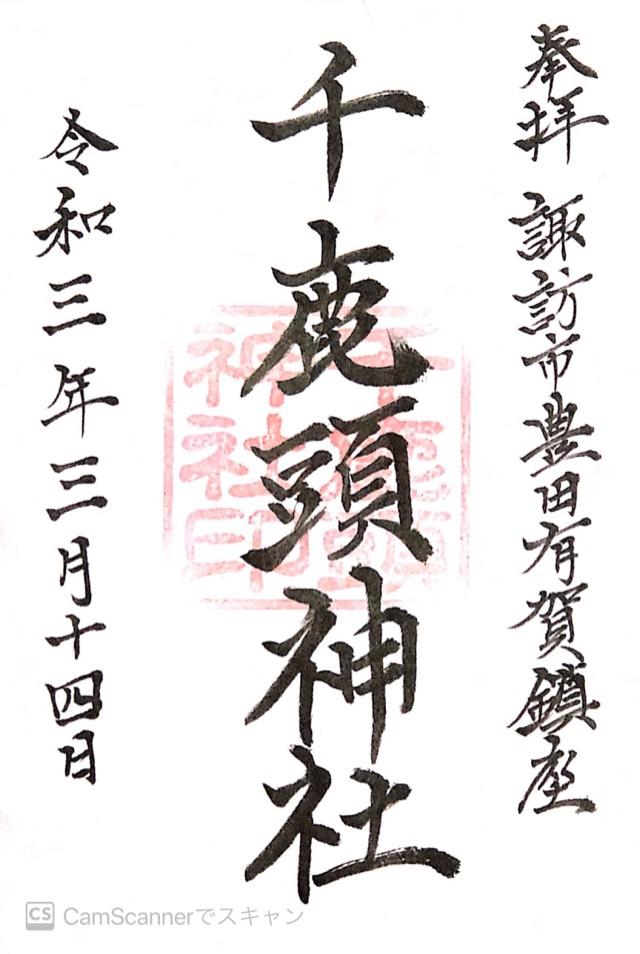 奉拝 諏訪市豊田有賀鎮座
千鹿頭神社
千鹿頭
神社印
令和三年三月十四日
CS CamScannerでスキャン